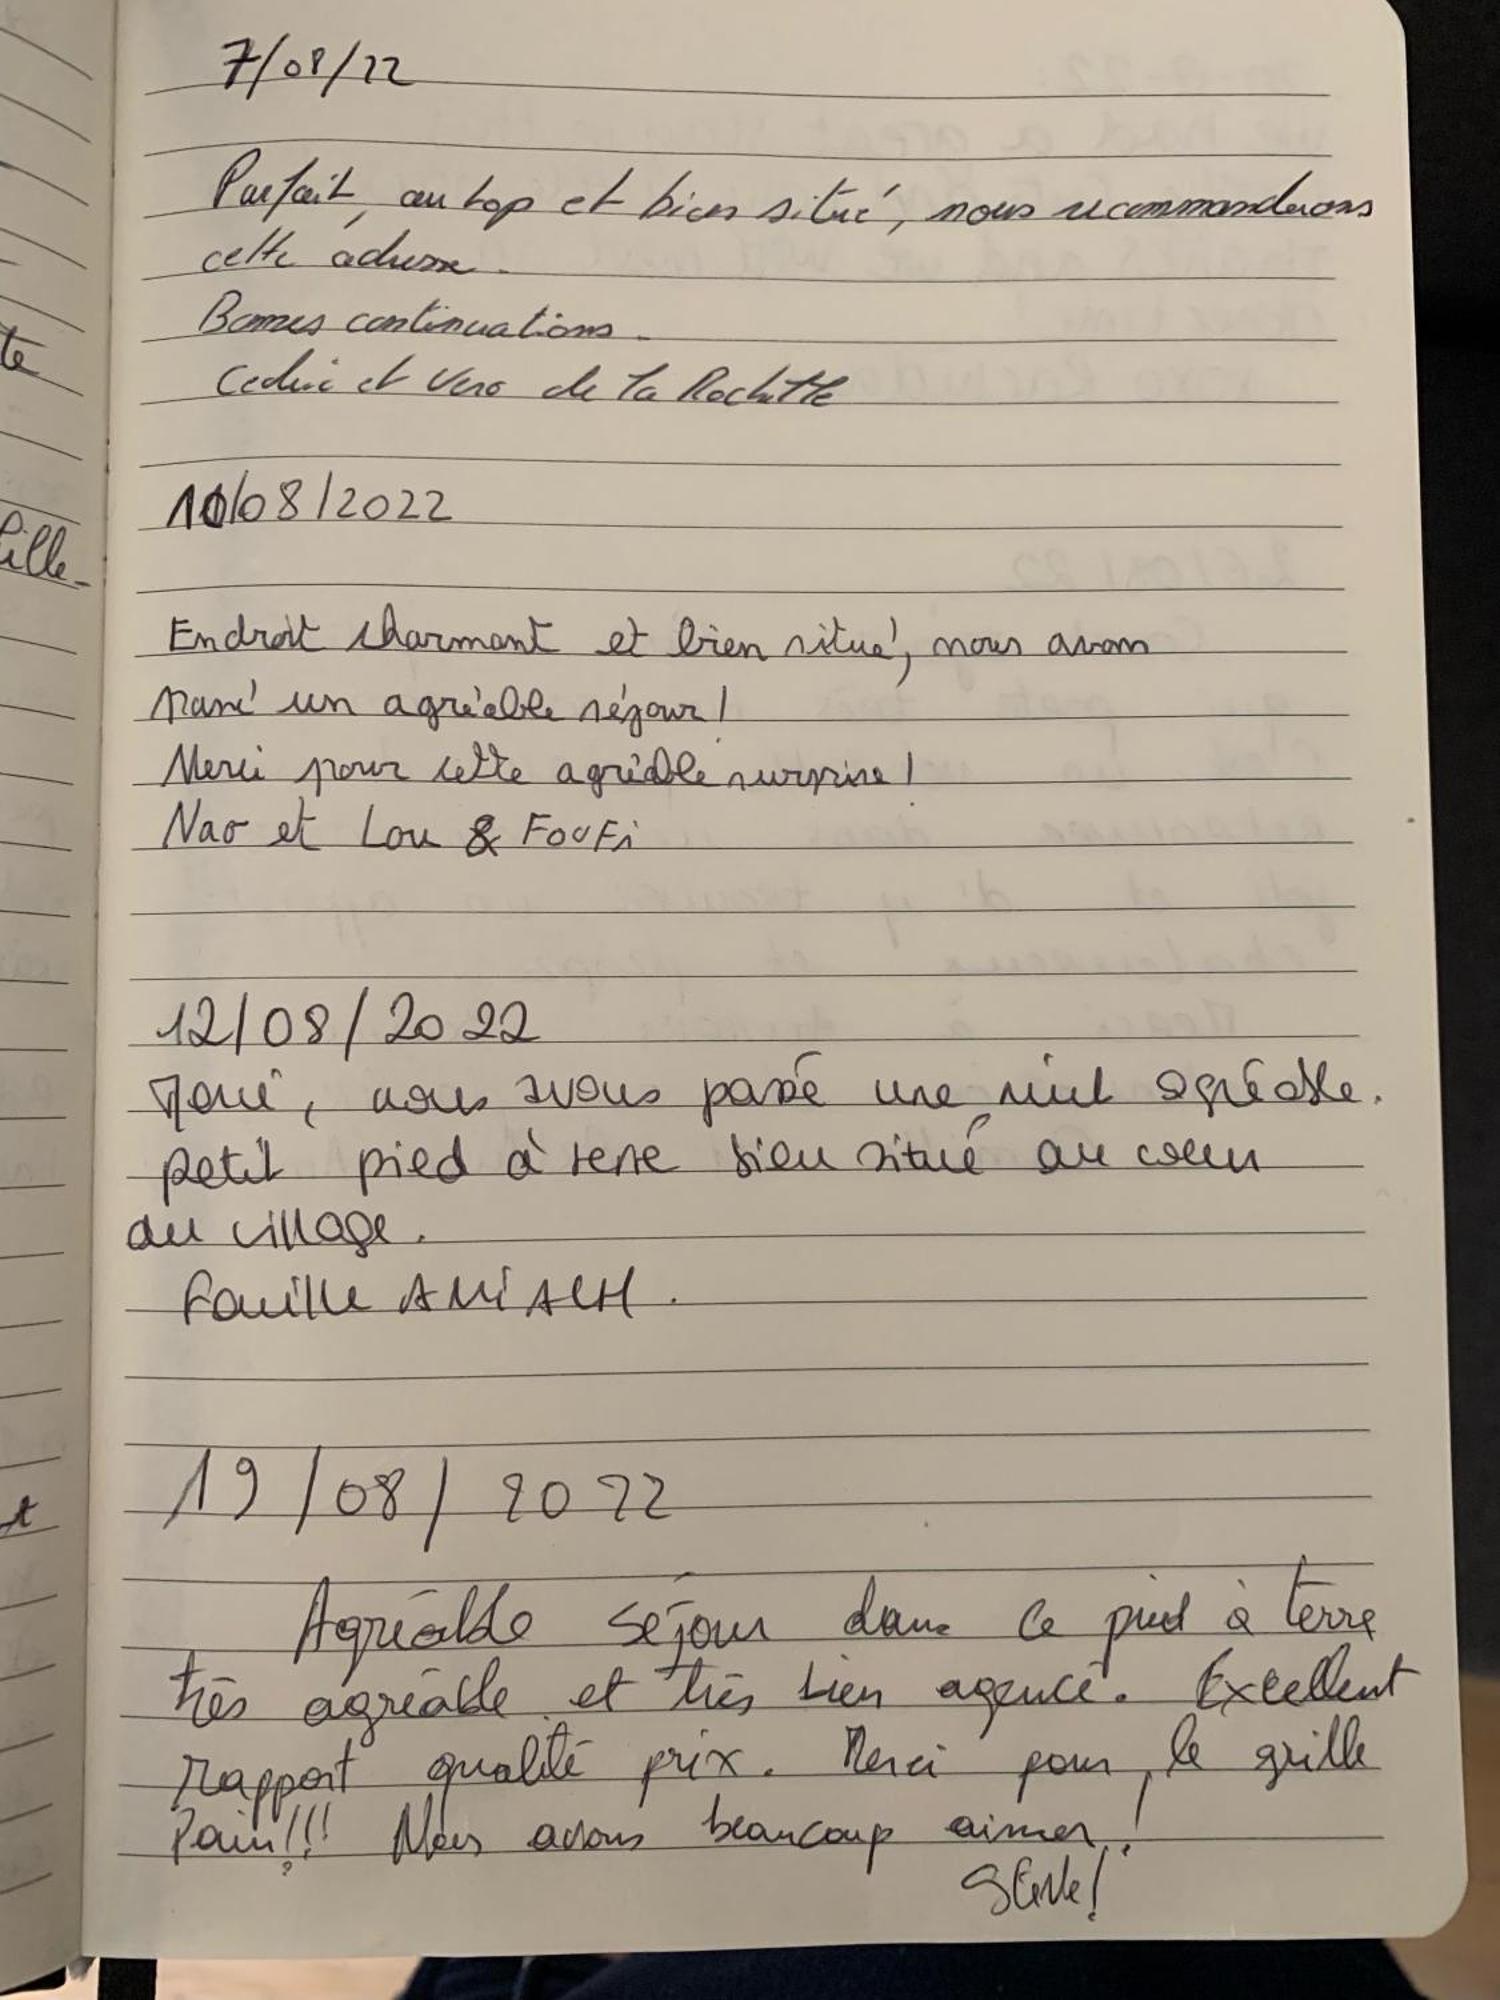 7/08/22
Parfait, au top et bien situé, nous recommanderons
cette adresse.
Bonnes continuations.
Cedric et Vero de la Rochette
10/08/2022
Endroit charmant et bien situé, nous avons
passé un agréable séjour!
Merci pour cette agréable surprise!
Nao et Lou & FouFi
12/08/2022
Merci, nous avons passé une nuit agréable.
petit pied à terre bien situé au coeur
du village.
Famille
19/08/2022
Agréable séjour dans ce pied à terre
très agréable et très bien agencé. Excellent
rapport qualité prix. Merci pour le grille
Pain!!! Nous avons beaucoup aimer!
te
fille-